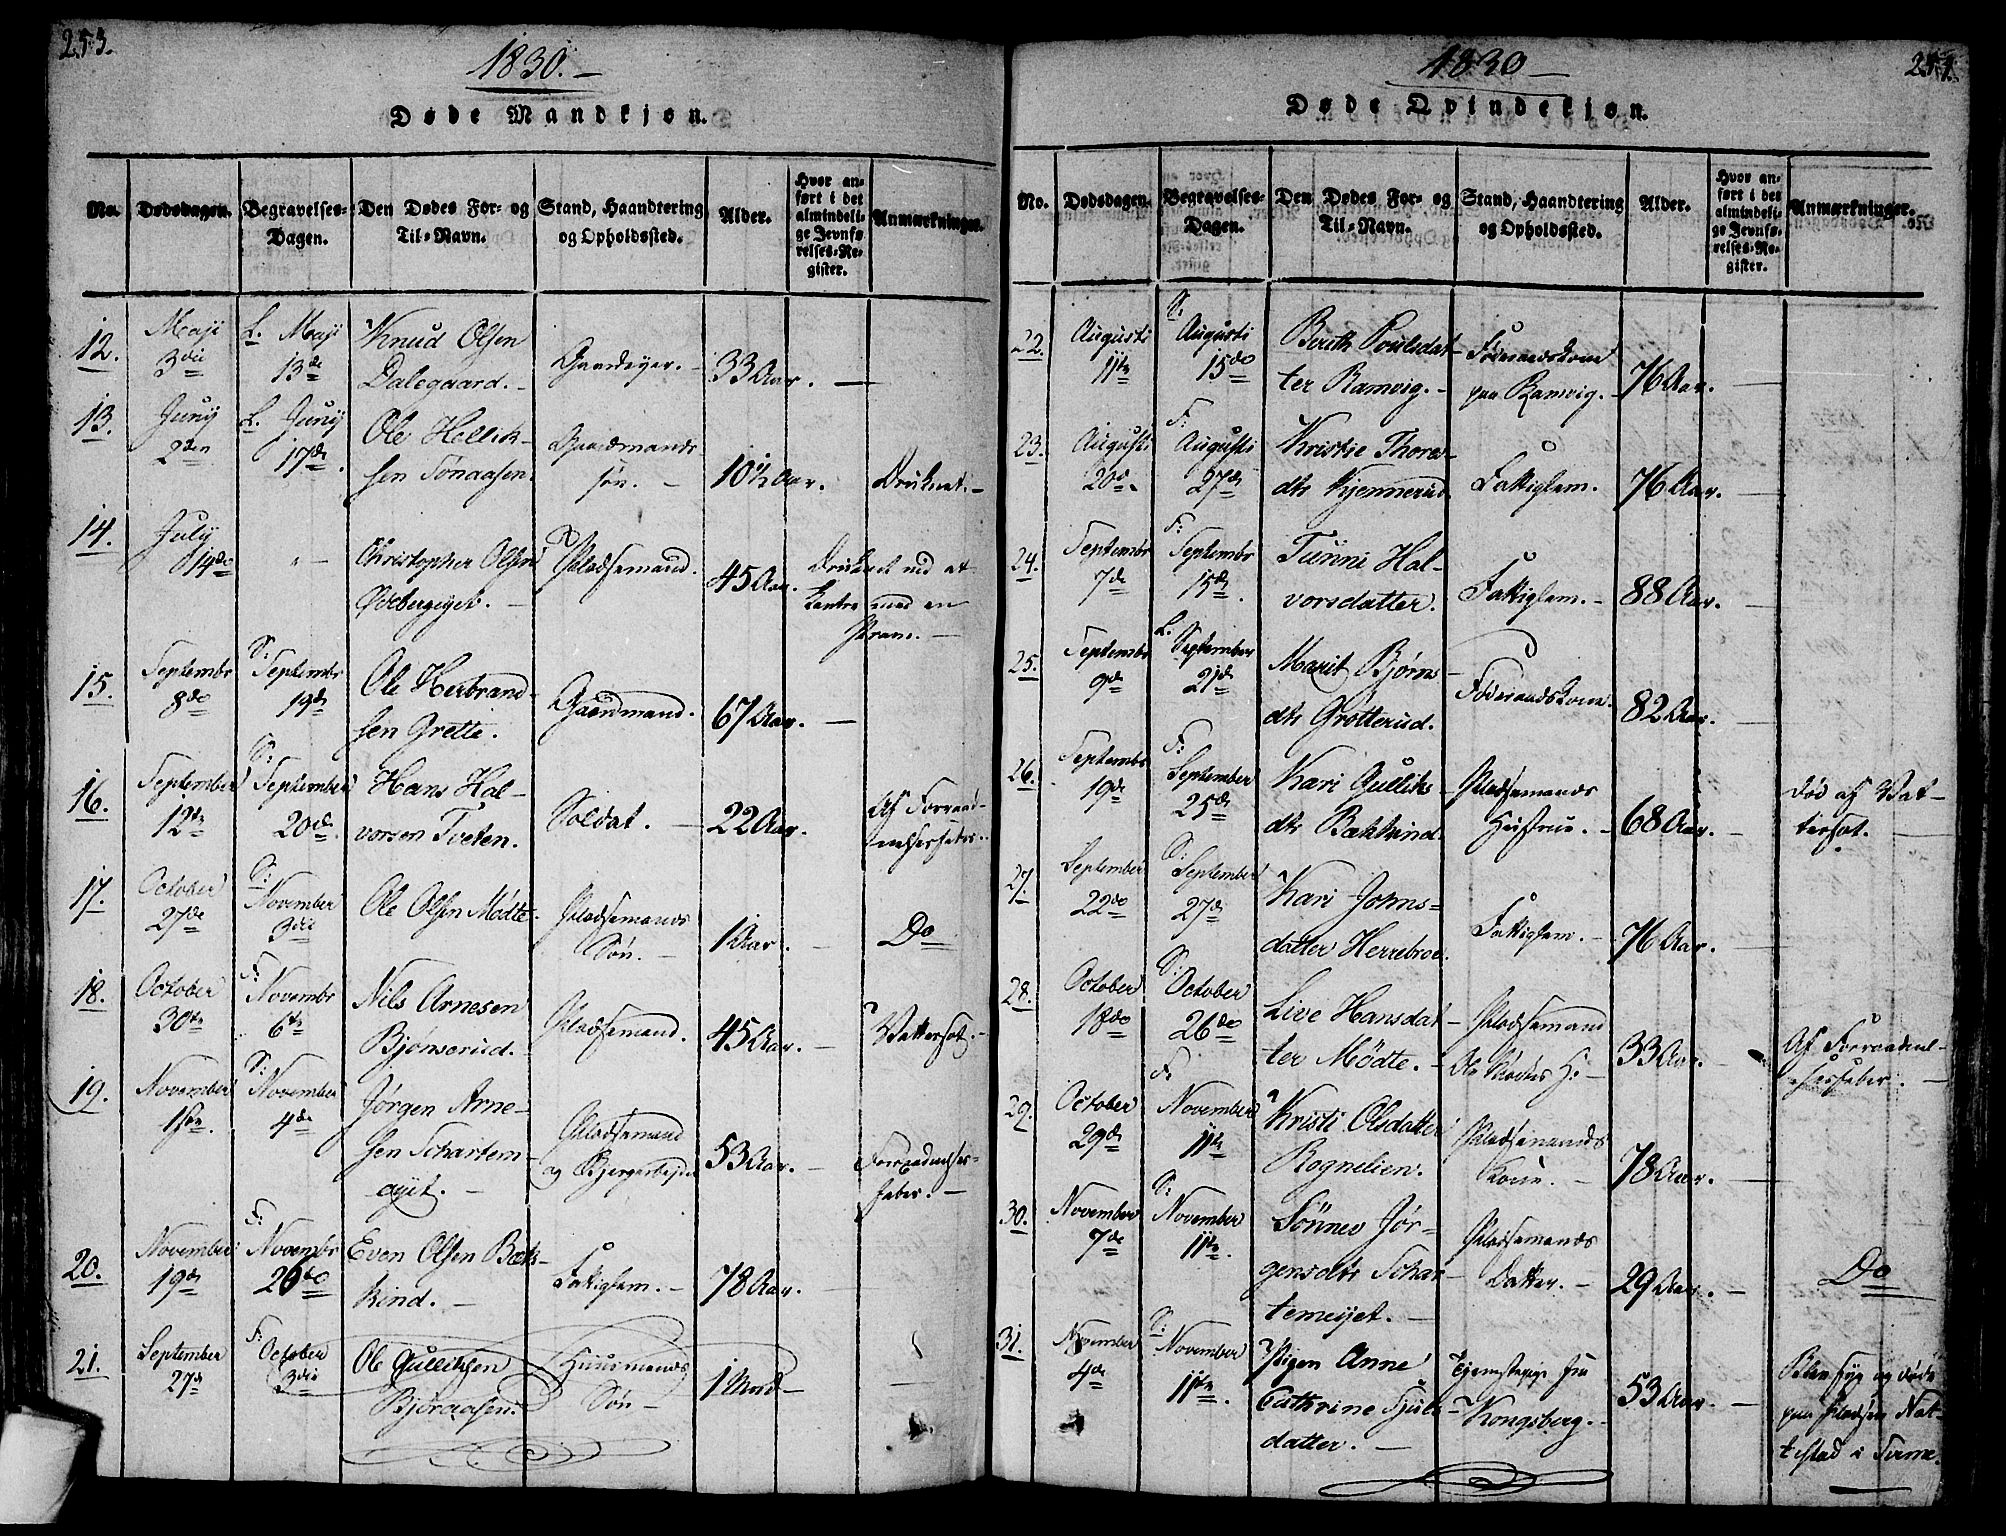 253.
1830. –
Døde Mandkjøn.
No.
Dødsdagen.
Begravelses-
Dagen.
Den Dødes For- og
Til-Navn.
Stand, Haandtering
og Opholdssted.
Alder.
Hvor an-
ført i det
almindeli-
ge Jevnfø-
relses-Re-
gister.
Anmærkninger.
12. Maji 3die L. Maji 13de Knud Olsen Gaardejer. – 33 Aar. –
Dalegaard. –
13. Juny 2den L. Juny 17de Ole Hellik- Gaardmands 10½ Aar. Druknet. –
sen Tonaasen. søn. –
14. July 14de " – Christopher Olsen Pladsemand. 45 Aar. Druknet ved at
Ødebergejet. – kantre med en
Pram. –
15. Septembr 8de S: Septembr 19de Ole Herbrand- Gaardmand. 67 Aar. –
sen Grette.
16. September 12te S: September 20de Hans Hal- Soldat. – 22 Aar. Af Forraad-
vorsen Tveten. nelsesfeber.
17. October 27de S: November 3die Ole Olsen Mødte. Pladsemands 1 Aar. – Do
Søn. –
18. October 30te F: Novembr 6te Nils Arnesen Pladsemand. 45 Aar. – Vattersot. –
Bjonserud.
19. November 1ste S: November 4de Jørgen Arne- Pladsemand 53 Aar. – Forraadnelses-
sen Schartem- og Bjergarbejder feber. –
ejet. –
20. November 19de F: Novembr 26de Even Olsen Bæk- Fattiglem. – 78 Aar. –
kind. –
21. September 27de F: October 3die Ole Gulliksen Huusmands 1 Aar –
Bjøraasen. Søn –
1830 –
Døde Qvindekjøn.
No.
Dødsdagen.
Begravelses-
Dagen.
Den Dødes For- og
Til-Navn.
Stand, Haandtering
og Opholdssted.
Alder.
Hvor an-
ført i det
almindeli-
ge Jevnfø-
relses-Re-
gister.
Anmærkninger.
22. Augusti 11te S: Augusti 15de Berith Povelsdat- Føderaadskone 76 Aar. –
ter Ramvig. – paa Ramvig. –
23. Augusti 20de F: Augusti 27de Kristie Thores- Fattiglem. – 76 Aar. –
dtr Kjennerud.
24. Septembr 7de F: Septembr 15de Tünni Hal- Fattiglem. – 88 Aar. –
vorsdatter.
25. Septembr 9de L. September 21de Marit Bjørns- Føderaadskone. 82 Aar. –
dtr Grotterud.
26. Septembr 19de F: September 25de Kari Gulliks- Pladsemands 68 Aar. – død af Vat-
dtr Bækkind. Hustrue. – tersot. –
27. September 22de S: September 27de Kari Johns- Fattiglem. – 76 Aar. –
datter Herrebroe.
28. October 18de S: October 26de Live Hansdat- Pladsemand 33 Aar. – Af Forraadnel-
ter Mödte. – Ole Mødtes H: – sesfeber. –
29. October 29de F: November 11te Kristi Olsdatter Pladsemands 78 Aar. –
Rognelien. Kone. –
30. November 7de S: November 11te Sönnev Jör- Pladsemands 29 Aar. – Do
gensdtr Schar- Datter. –
temejet. –
31. November 4de S: November 11te Pigen Anne Tjenestepige fra 53 Aar. –
Cathrine Kongsberg. –
datter. – paa Pladsen Nat-
testad i